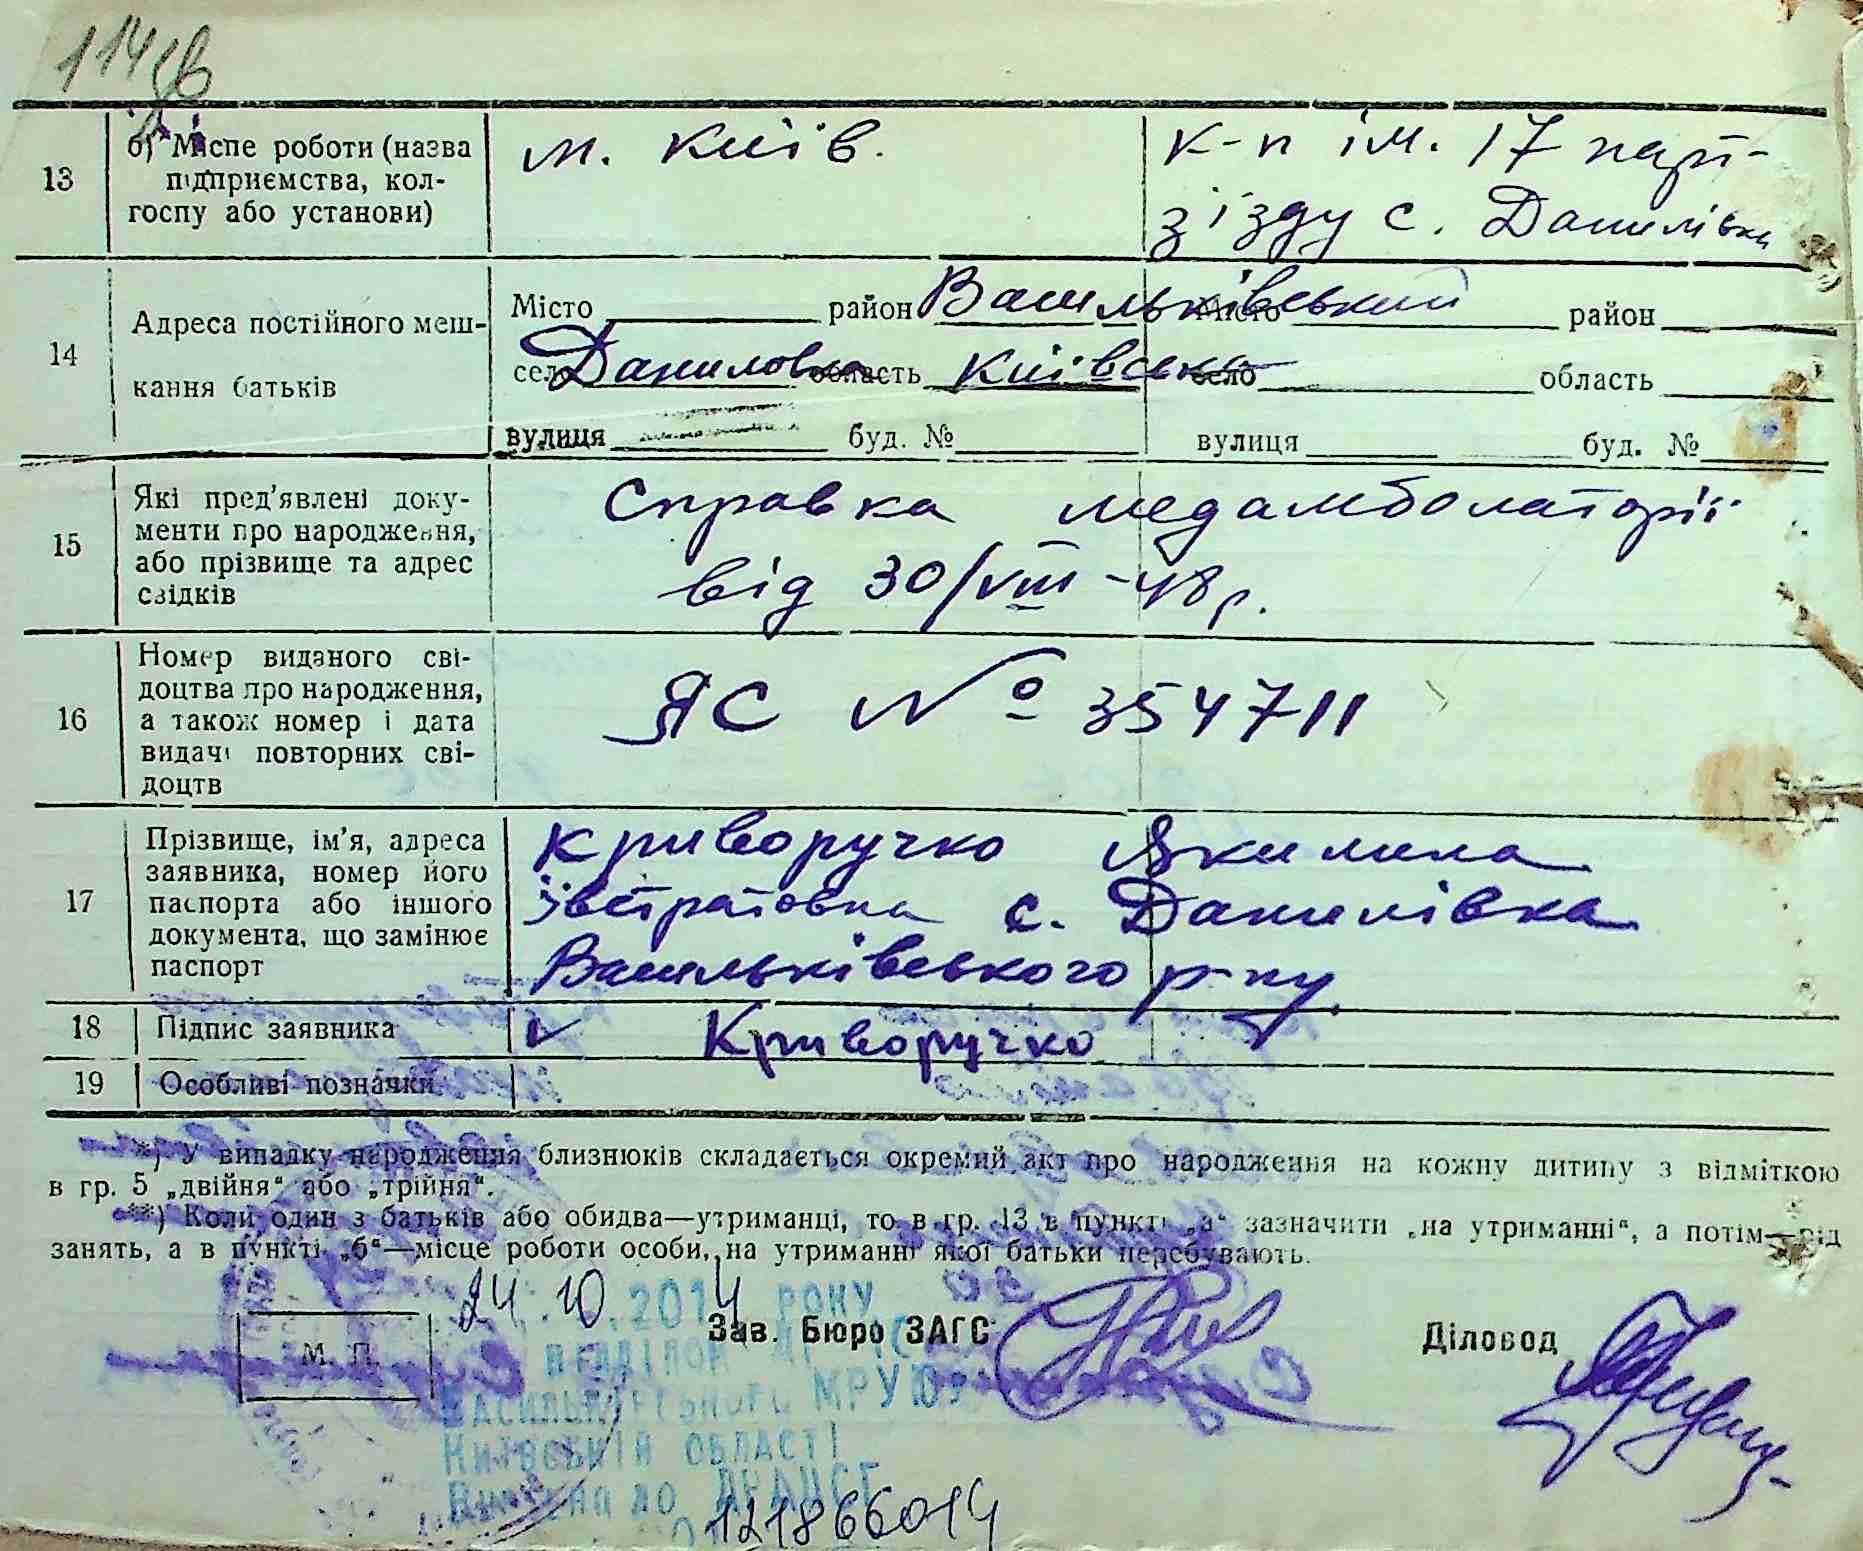 114 зв
13 б) Місце роботи (назва підприємства, колгоспу або установи)
м. Київ.
к-п ім. 17 парт-
з'їзду с. Данилівка
14 Адреса постійного меш-
кання батьків
Місто район Васильківський Місто район
село Даниловка область Київська село область
вулиця буд. № вулиця буд. №
15 Які пред'явлені доку-
менти про народження,
або прізвище та адрес
свідків
Справка медамболаторії
від 30/VIII-48р.
16 Номер виданого сві-
доцтва про народження,
а також номер і дата
видачі повторних сві-
доцтв
ЯС № 354711
17 Прізвище, ім'я, адреса
заявника, номер його
паспорта або іншого
документа, що замінює
паспорт
Криворучко Якилина
Івстратовна с. Данилівка
Васильківського р-ну
18 Підпис заявника
Криворучко
19 Особливі позначки
*) У випадку народження близнюків складається окремий акт про народження на кожну дитину з відміткою
в гр. 5 „двійня“ або „трійня“.
**) Коли один з батьків або обидва—утриманці, то в гр. 13 в пункті „а“ зазначити „на утриманні“, а потім—рід
занять, а в пункті „б“—місце роботи особи, на утриманні якої батьки перебувають.
24.10.2014 РОКУ
М. П.
Зав. Бюро ЗАГС
Діловод
ВІДДІЛОМ
ВАСИЛЬКІВСЬКОГО МРУЮ
КИЇВСЬКІЙ ОБЛАСТІ
ДО ДРАЦСГ
121866014